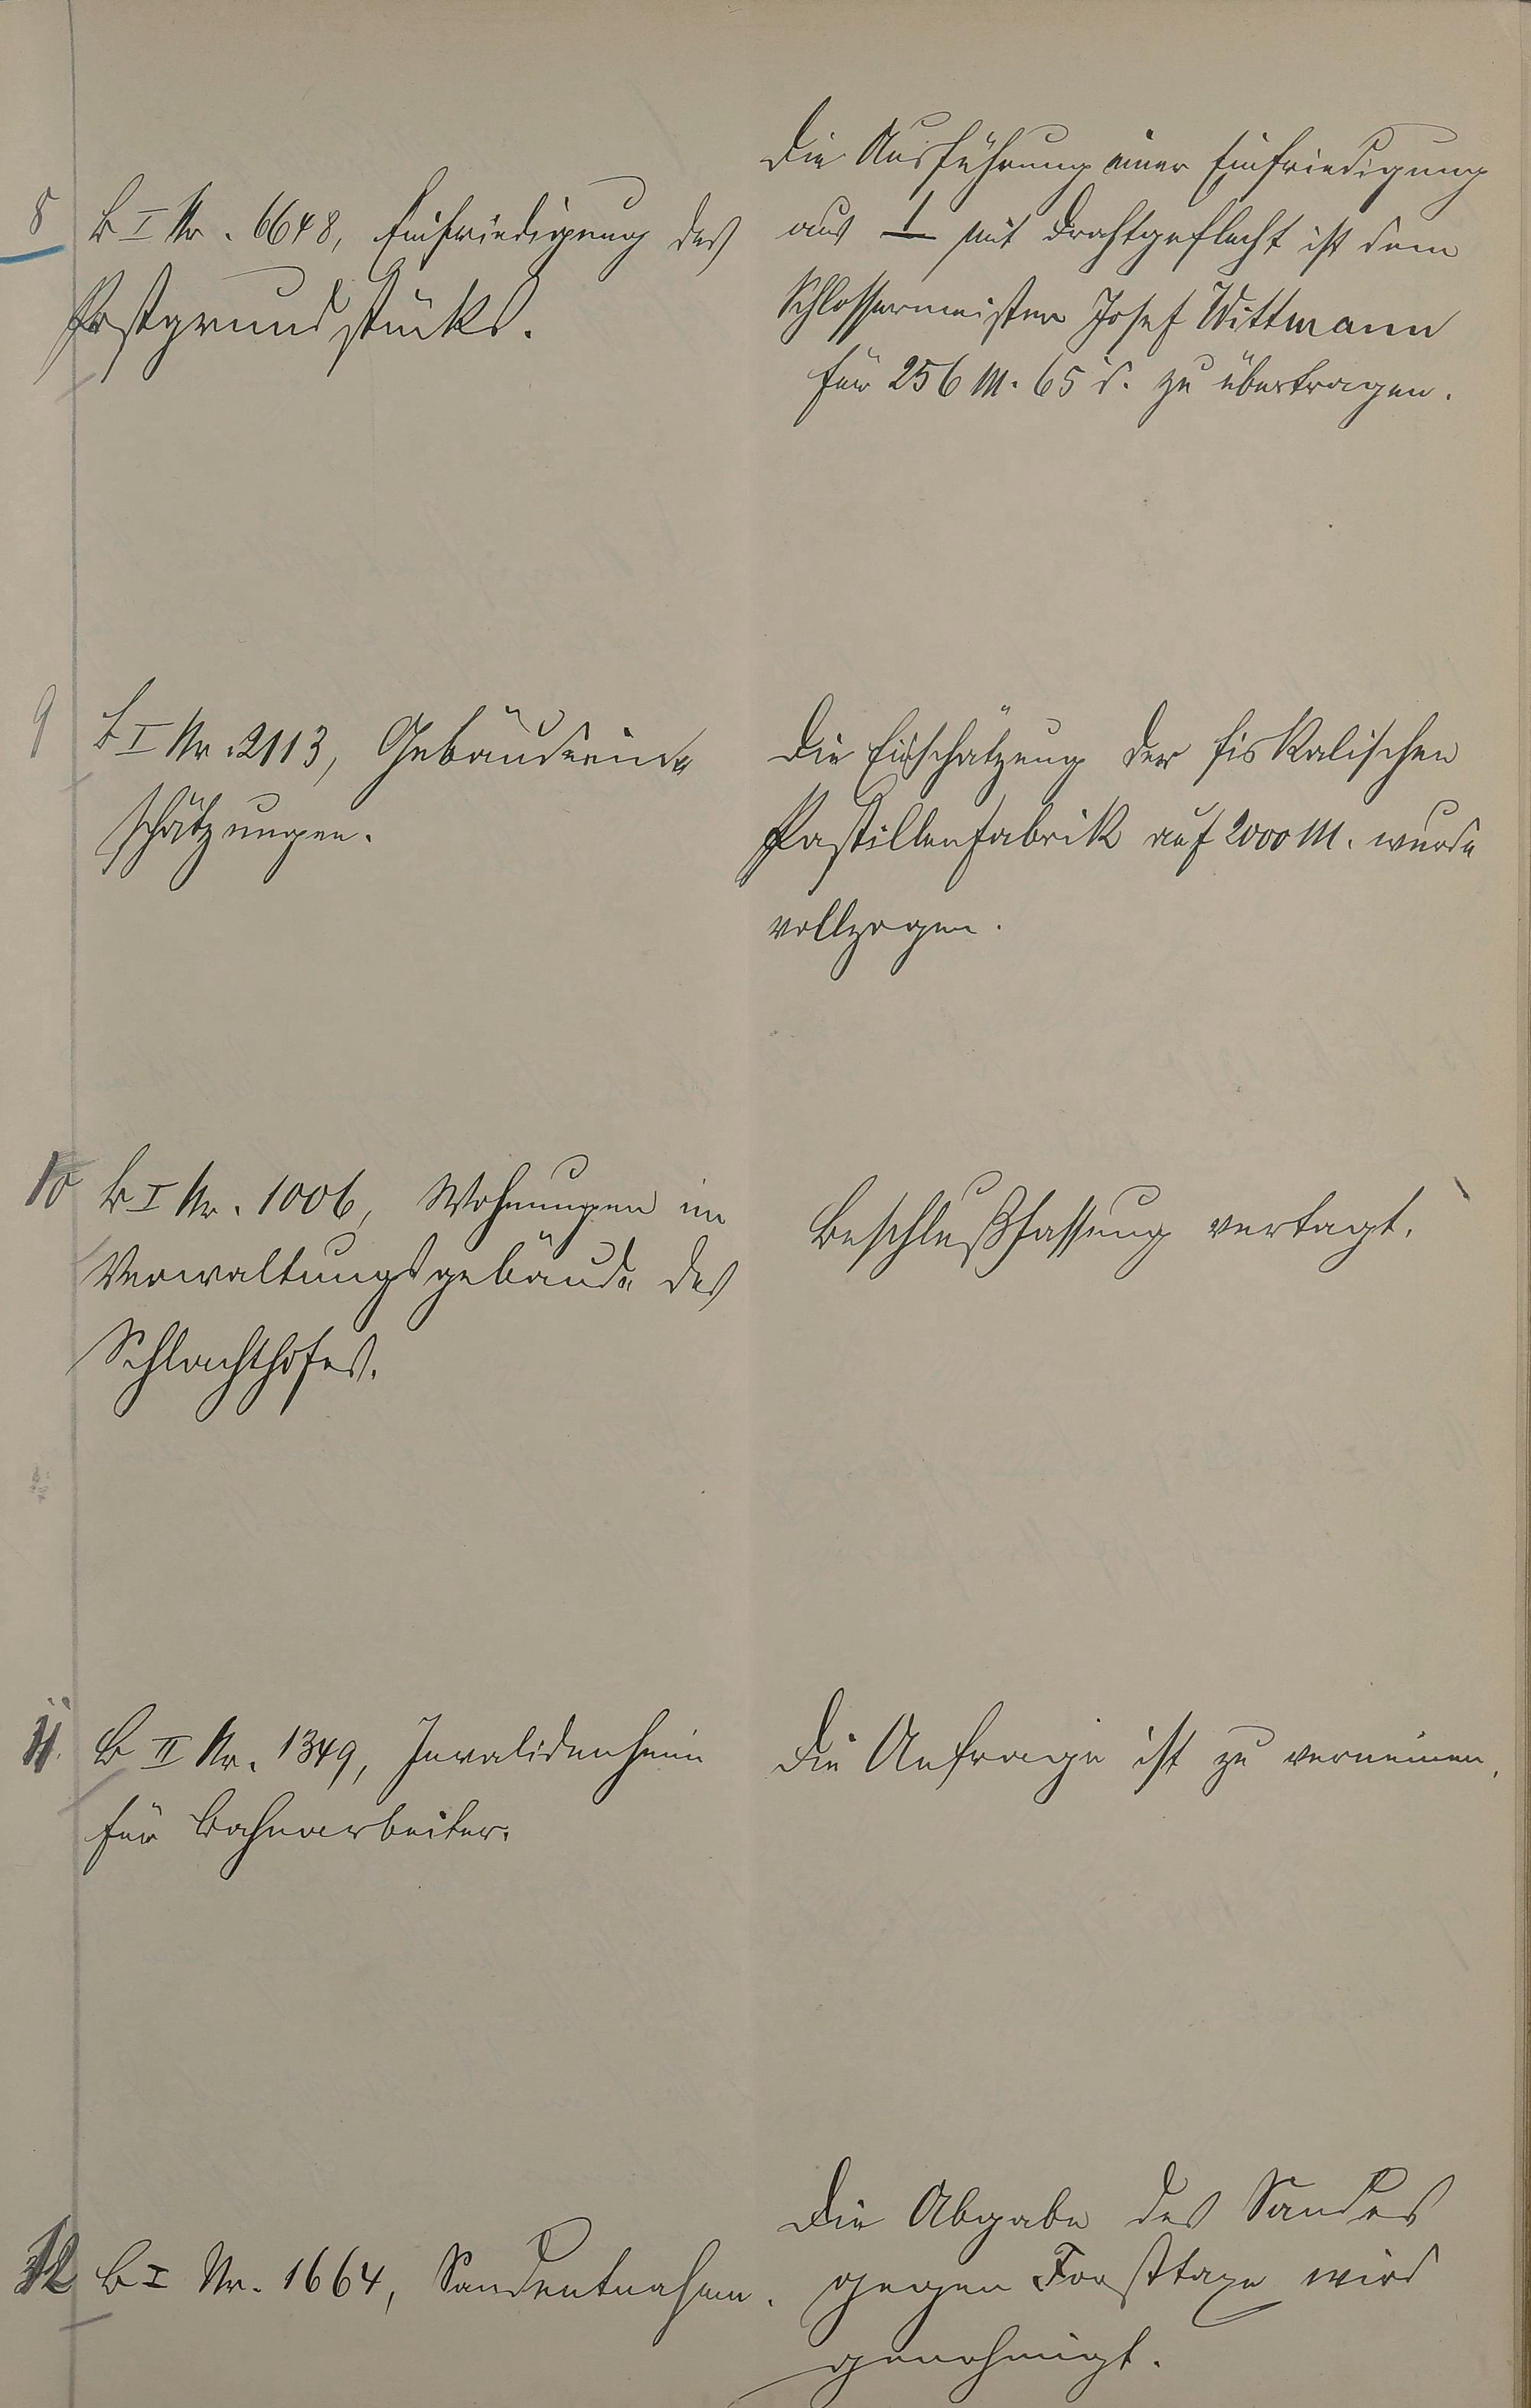 8
B I Nr. 6648, Einfriedigung des
Postgrundstücks.
Die Ausführung einer Einfriedigung
aus ⊥ mit Drahtgeflecht ist dem
Schlossermeister Josef Wittmann
für 256 M. 65 d. zu übertragen.
9
B I Nr. 2113, Gebäudeein-
schätzungen.
Die Einschätzung der fiskalischen
Pastillenfabrik auf 2000 M. wurde
vollzogen.
10
B I Nr. 1006, Wohnungen im
Verwaltungsgebäude des
Schlachthofes.
Beschlußfassung vertagt.
11.
B II Nr. 1349, Invalidenheim
für Bahnarbeiter.
Die Anfrage ist zu verneinen.
12
B I Nr. 1664, Sandentnahme.
Die Abgabe des Sandes
gegen Forsttaxe wird
genehmigt.